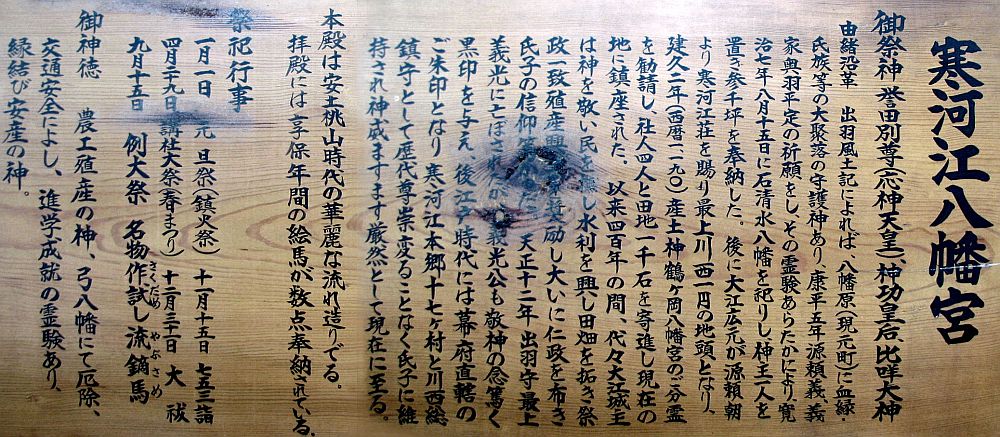 寒河江八幡宮
御祭神 誉田別尊(応神天皇)、神功皇后、比咩大神
由緒沿革 出羽風土記によれば、八幡原(現元町)に血縁・
氏族等の大聚落の守護神あり、康平五年源頼義、義
家奥羽平定の祈願をし、その霊験あらたかにより、寛
治七年八月十五日に石清水八幡を祀りし神主一人を
置き参千坪を奉納した。後に大江広元が源頼朝
より寒河江荘を賜り最上川西一円の地頭となり、
建久二年(西暦一一九〇)産土神鶴ヶ岡八幡宮のご分霊
を勧請し、社人四人と田地一千石を寄進し現在の
地に鎮座された。 以来四百年の間、代々大江城主
は神を敬い民を し水利を興し田畑を拓き祭
政一致殖産興 を奨励し大いに仁政を布き
氏子の信仰 た。天正十二年出羽守最上
義光に亡ぼされ が、義光公も敬神の念篤く
黒印を与え、後江戸時代には幕府直轄の
ご朱印となり寒河江本郷十七ヶ村と川西総
鎮守として歴代尊崇変ることなく氏子に維
持され神威ますます厳然として現在に至る。
本殿は安土桃山時代の華麗な流れ造りでる。
拝殿には享保年間の絵馬が数点奉納されている。
祭祀行事
一月一日 元旦祭(鎮火祭) 十一月十五日 七五三詣
四月二十九日 講社大祭(春まつり) 十二月三十日 大祓
九月十五日 例大祭 名物作試し流鏑馬
さくだめ やぶさめ
御神徳 農工殖産の神、弓八幡にて厄除、
交通安全によし、進学成就の霊験あり、
縁結び安産の神。